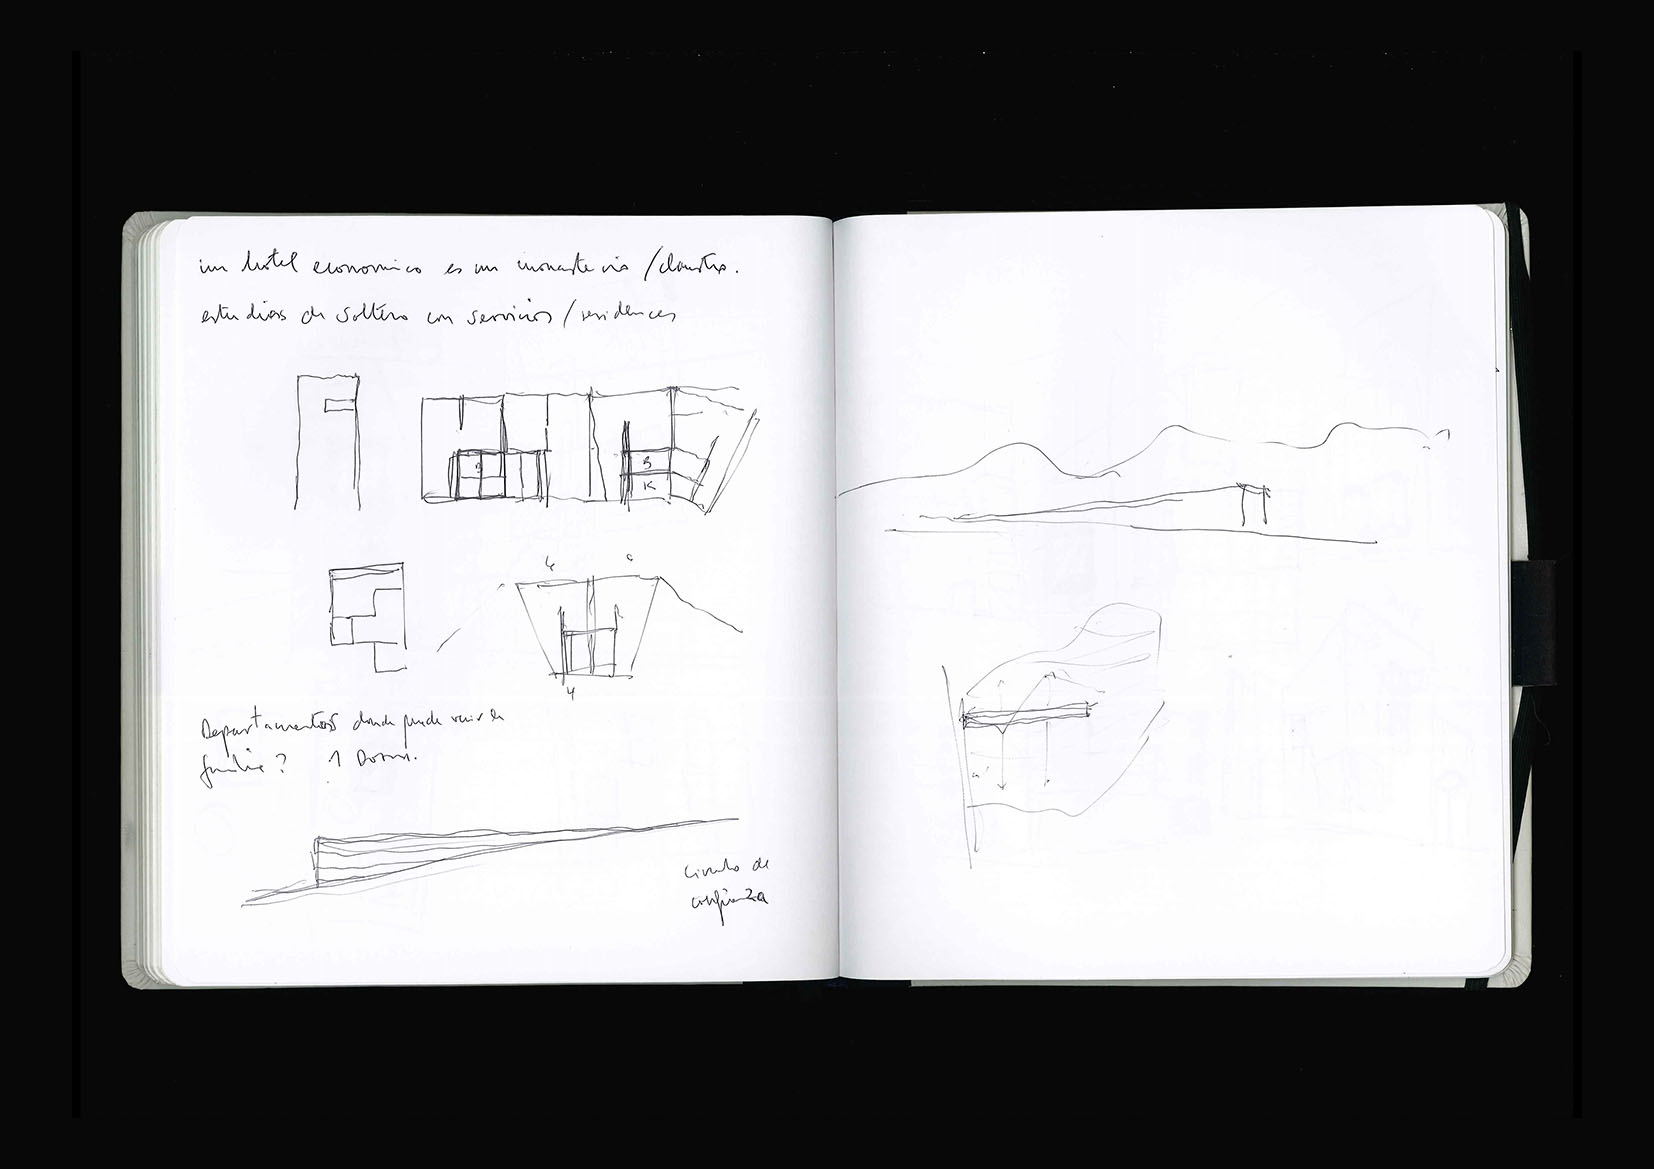 un hotel economico es un monasterio / claustro.
estudios de soltero con servicios / residences
B
B
K
4
Departamentos donde puede venir la
familia? 1 Dorm.
circulo de
confianza